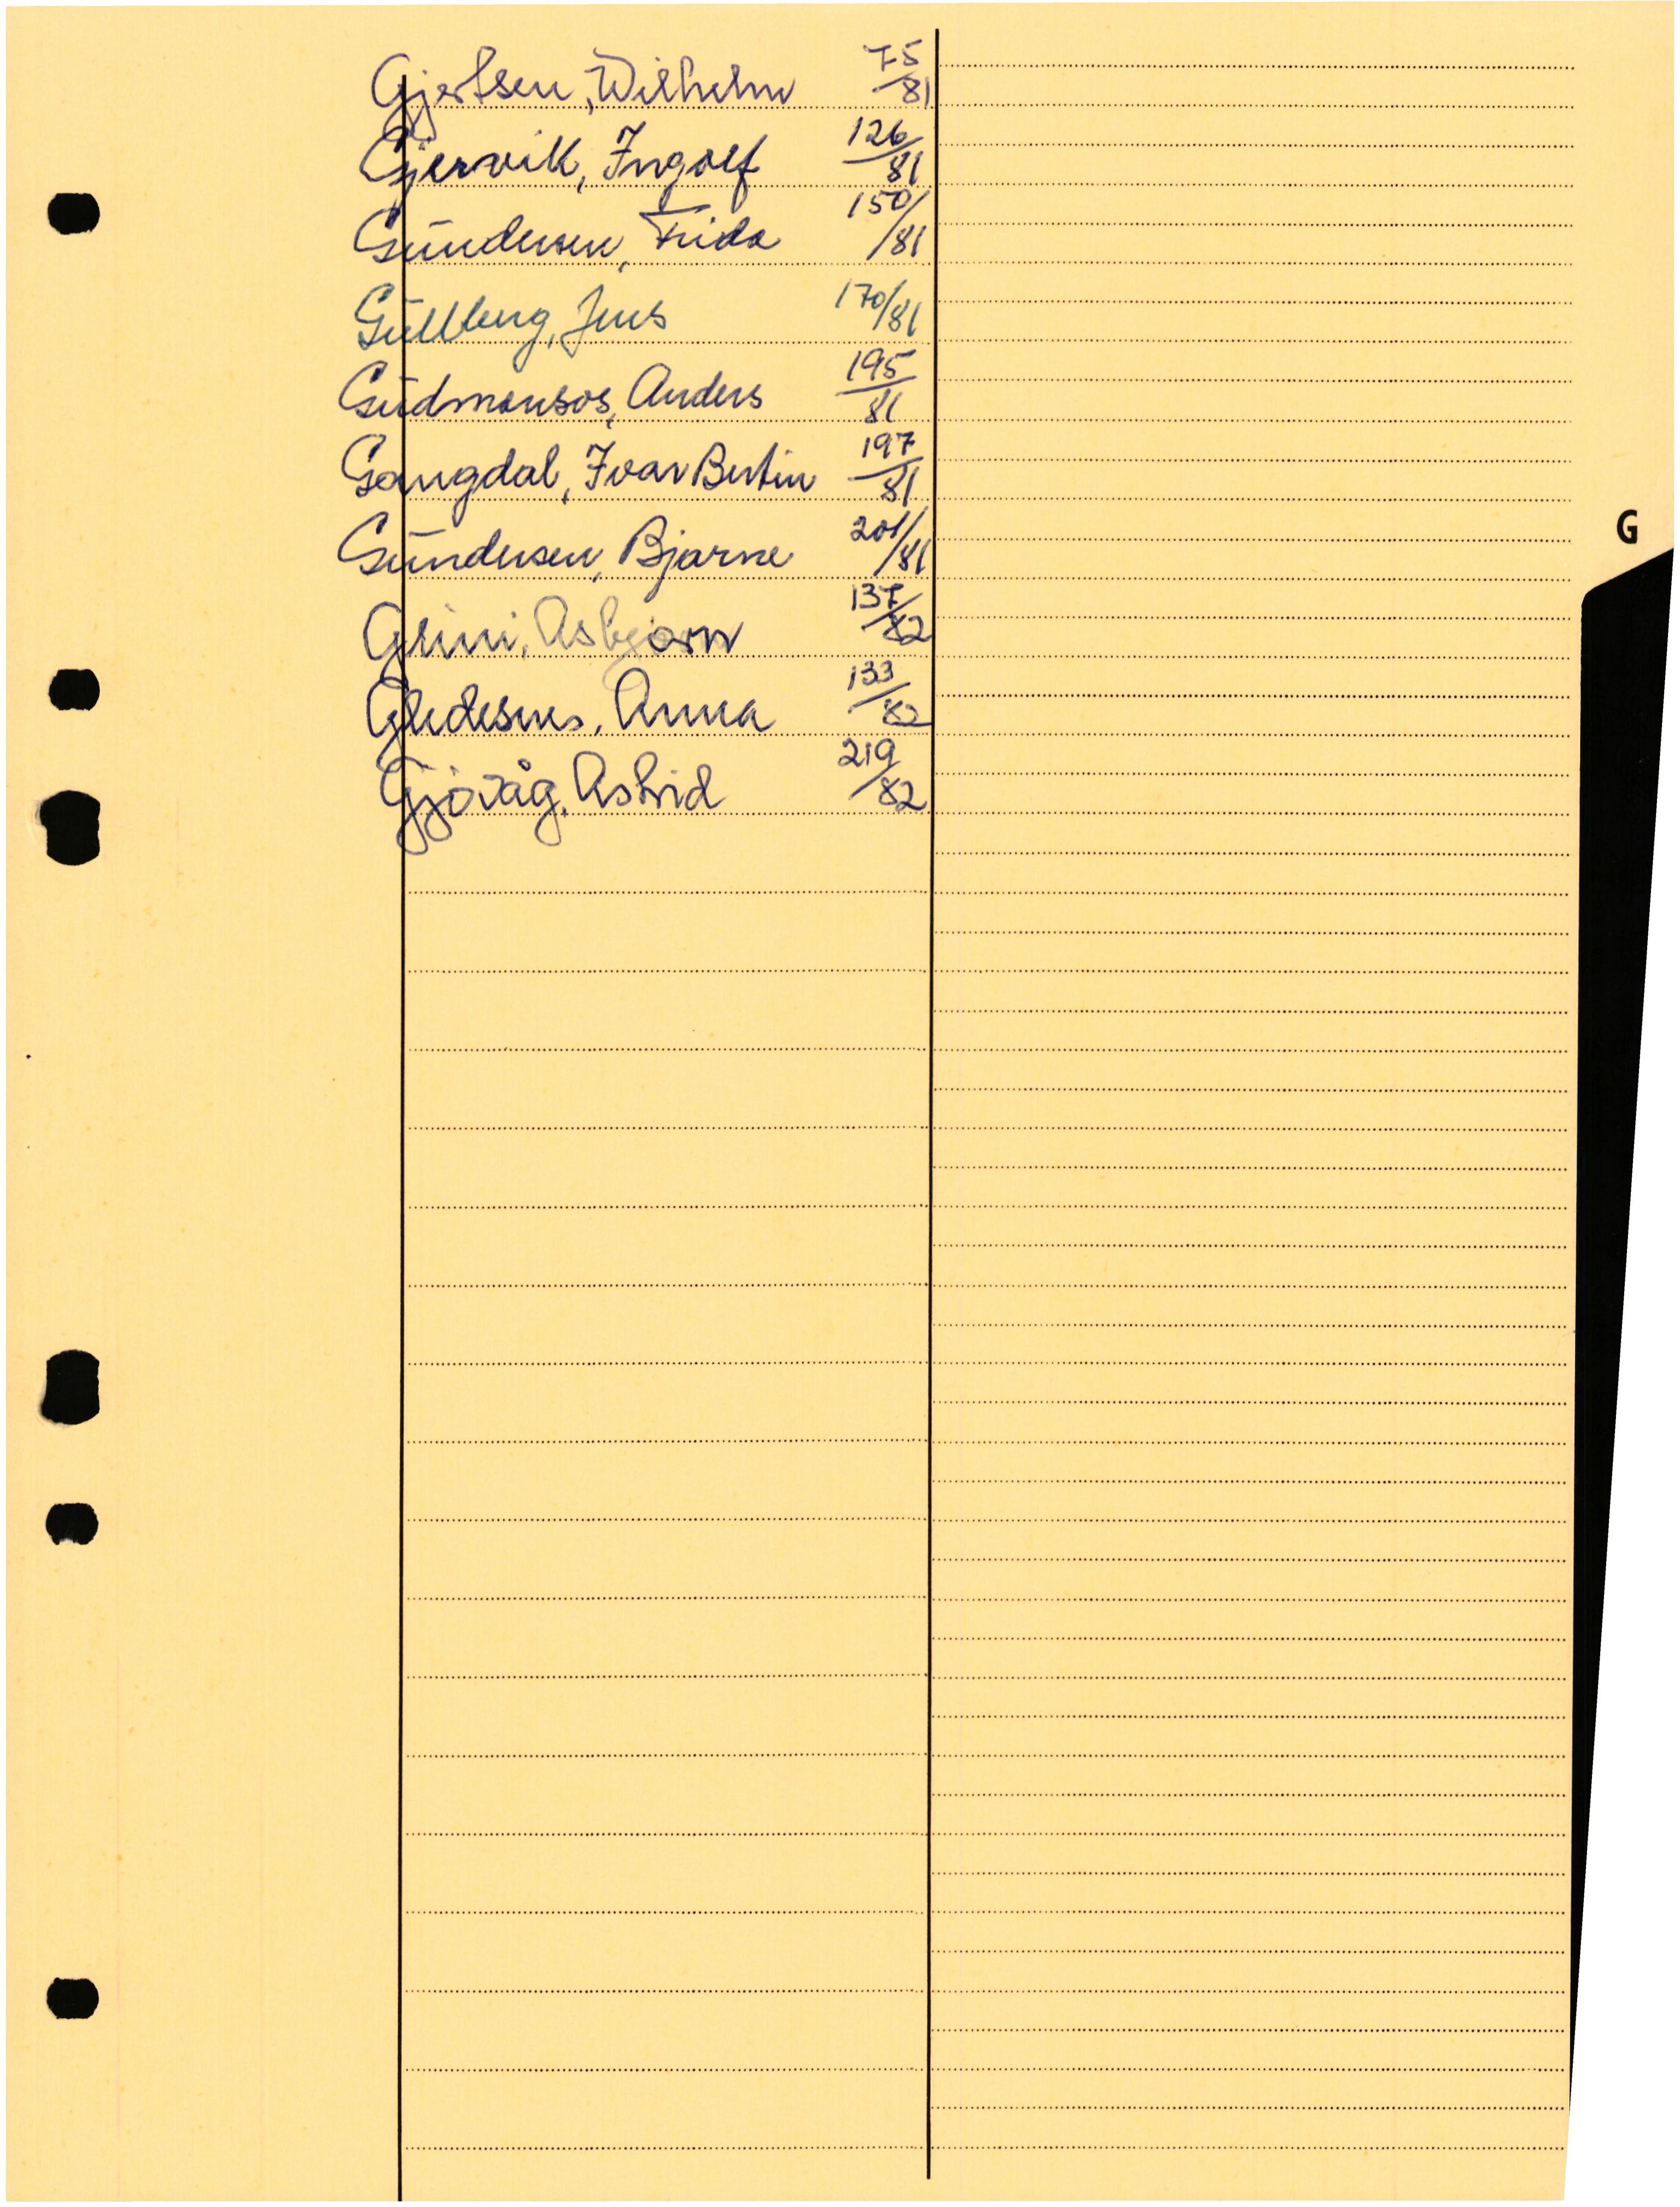 Gjertsen, Wilhelm 75/81
Gjervik, Ingolf 126/81
Gundersen, Frida 150/81
Gullberg, Jens 170/81
Gudmonsos, Anders 195/81
Gangdal, Ivar Bertin 197/81
Gundersen, Bjarne 201/81
G
Grini, Asbjørn 137/82
Anna 133/82
Gjøvåg, Astrid 219/82